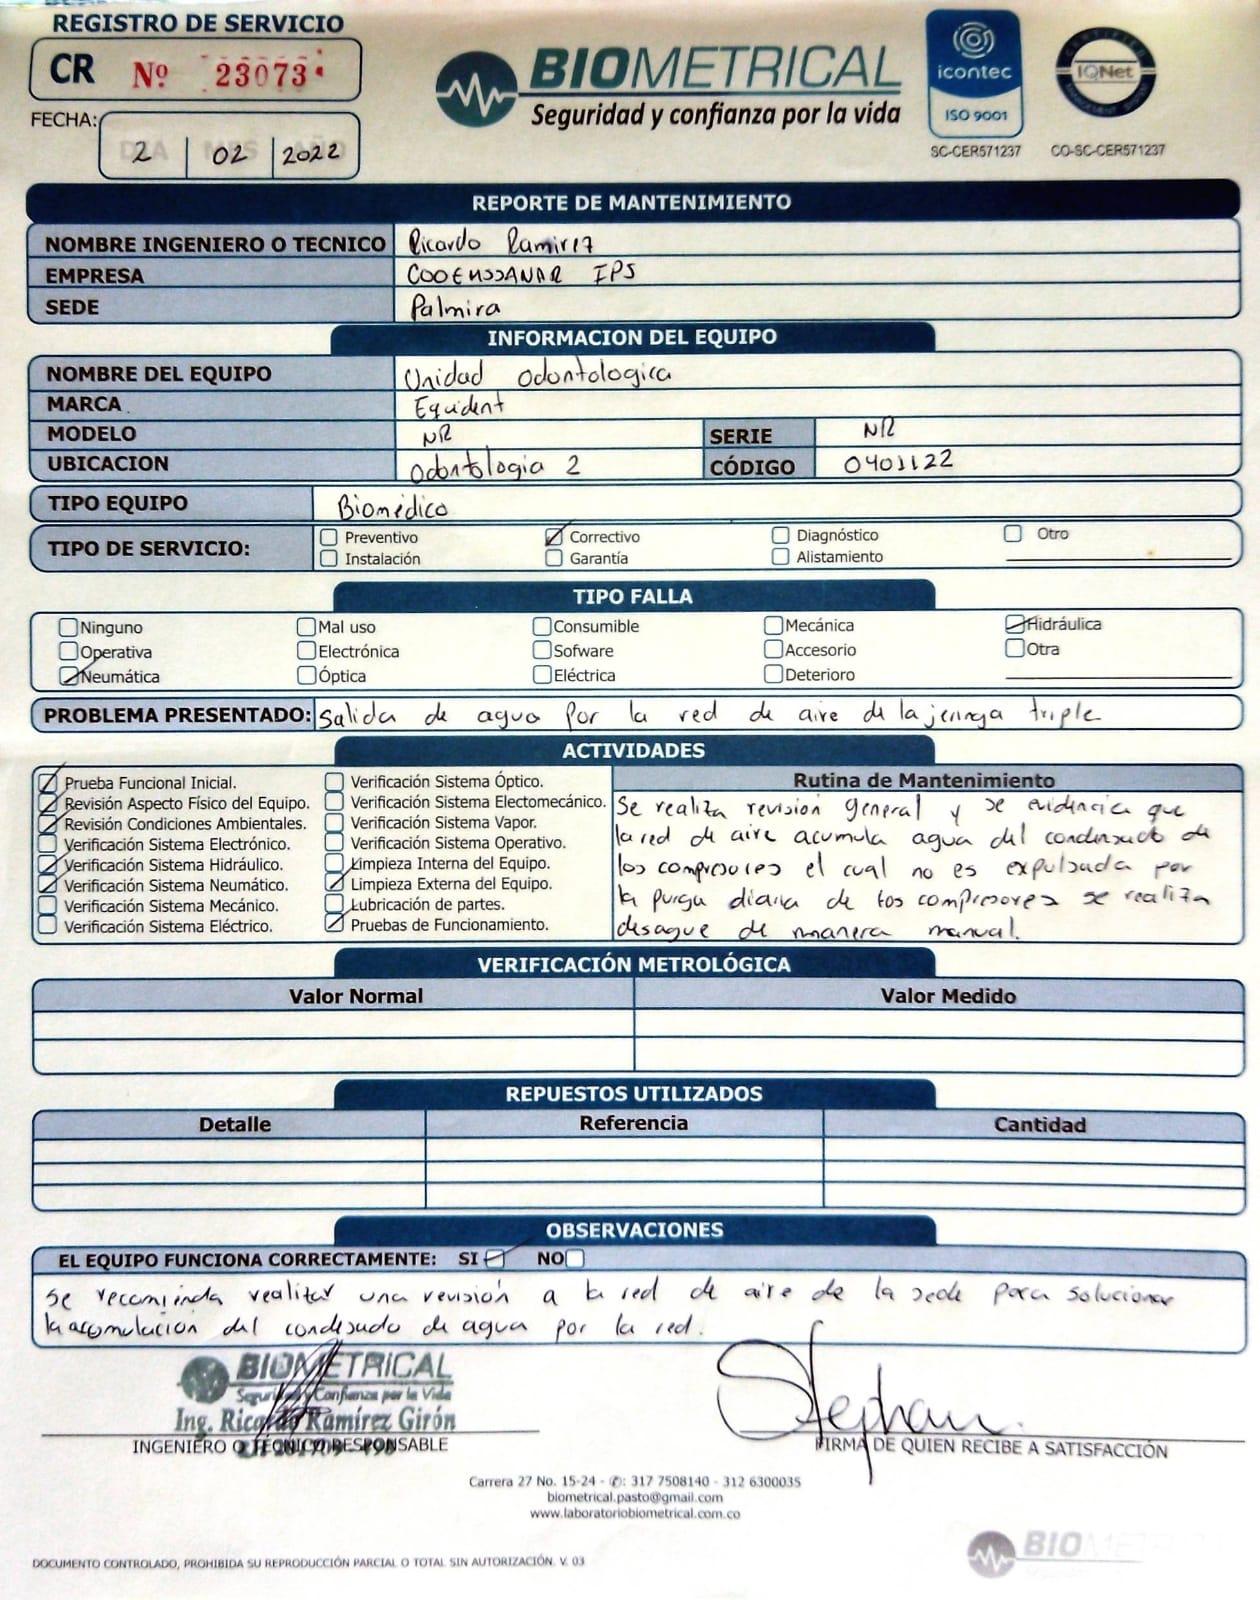 REGISTRO DE SERVICIO
CR Nº 23073
BIOMETRICAL
Seguridad y confianza por la vida
icontec
ISO 9001
SC-CER571237
CERTIFIED
IQNet
MANAGEMENT SYSTEM
CO-SC-CER571237
FECHA: 2 02 2022
DIA MES AÑO
REPORTE DE MANTENIMIENTO
NOMBRE INGENIERO O TECNICO Ricardo Ramirez
EMPRESA COOEMSSANAR IPS
SEDE Palmira
INFORMACION DEL EQUIPO
NOMBRE DEL EQUIPO Unidad Odontologica
MARCA Equident
MODELO NR SERIE NR
UBICACION Odontologia 2 CÓDIGO 0401122
TIPO EQUIPO Biomédico
TIPO DE SERVICIO: Preventivo Correctivo Diagnóstico Otro
Instalación Garantía Alistamiento
TIPO FALLA
Ninguno Mal uso Consumible Mecánica Hidráulica
Operativa Electrónica Sofware Accesorio Otra
Neumática Óptica Eléctrica Deterioro
PROBLEMA PRESENTADO: Salida de agua por la red de aire de la jeringa triple
ACTIVIDADES
Prueba Funcional Inicial.
Revisión Aspecto Físico del Equipo.
Revisión Condiciones Ambientales.
Verificación Sistema Electrónico.
Verificación Sistema Hidráulico.
Verificación Sistema Neumático.
Verificación Sistema Mecánico.
Verificación Sistema Eléctrico.
Verificación Sistema Óptico.
Verificación Sistema Electomecánico.
Verificación Sistema Vapor.
Verificación Sistema Operativo.
Limpieza Interna del Equipo.
Limpieza Externa del Equipo.
Lubricación de partes.
Pruebas de Funcionamiento.
Rutina de Mantenimiento
Se realiza revisión general y se evidencia que
la red de aire acumula agua del condensado de
los compresores el cual no es expulsada por
la purga diaria de los compresores se realiza
desague de manera manual.
VERIFICACIÓN METROLÓGICA
Valor Normal Valor Medido
REPUESTOS UTILIZADOS
Detalle Referencia Cantidad
OBSERVACIONES
EL EQUIPO FUNCIONA CORRECTAMENTE: SI NO
se recomienda realizar una revisión a la red de aire de la sede para solucionar
la acomulacion del condesado de agua por la red.
BIOMETRICAL
Seguridad y Confianza por la Vida
Ing. Ricardo Ramírez Girón
INGENIERO O TÉCNICO RESPONSABLE
Stephan
FIRMA DE QUIEN RECIBE A SATISFACCIÓN
Carrera 27 No. 15-24 - ✆: 317 7508140 - 312 6300035
biometrical.pasto@gmail.com
www.laboratoriobiometrical.com.co
DOCUMENTO CONTROLADO, PROHIBIDA SU REPRODUCCIÓN PARCIAL O TOTAL SIN AUTORIZACIÓN. V. 03